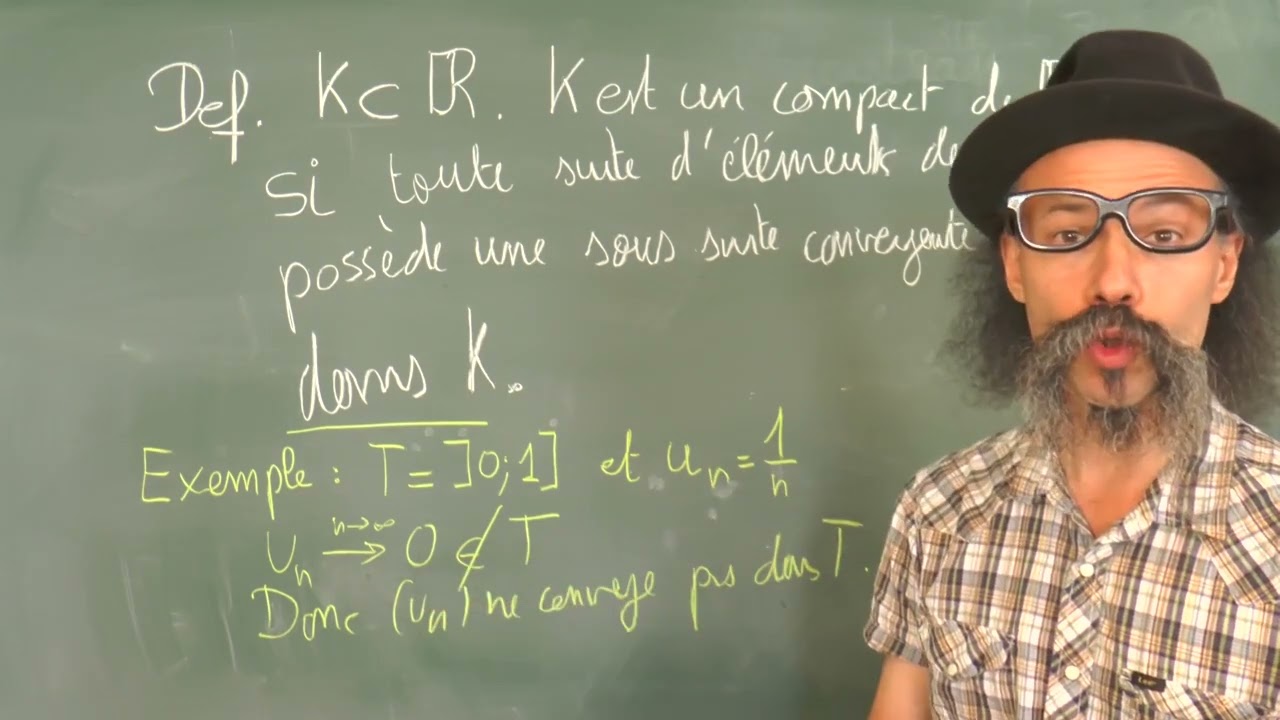 Def. K ⊂ ℝ. K est un compact de
si toute suite d'éléments de
possède une sous suite convergente
dans K.
Exemple : T = ]0;1] et un = 1/n
Un —n→∞→ 0 ∉ T
Donc (Un) ne converge pas dans T.